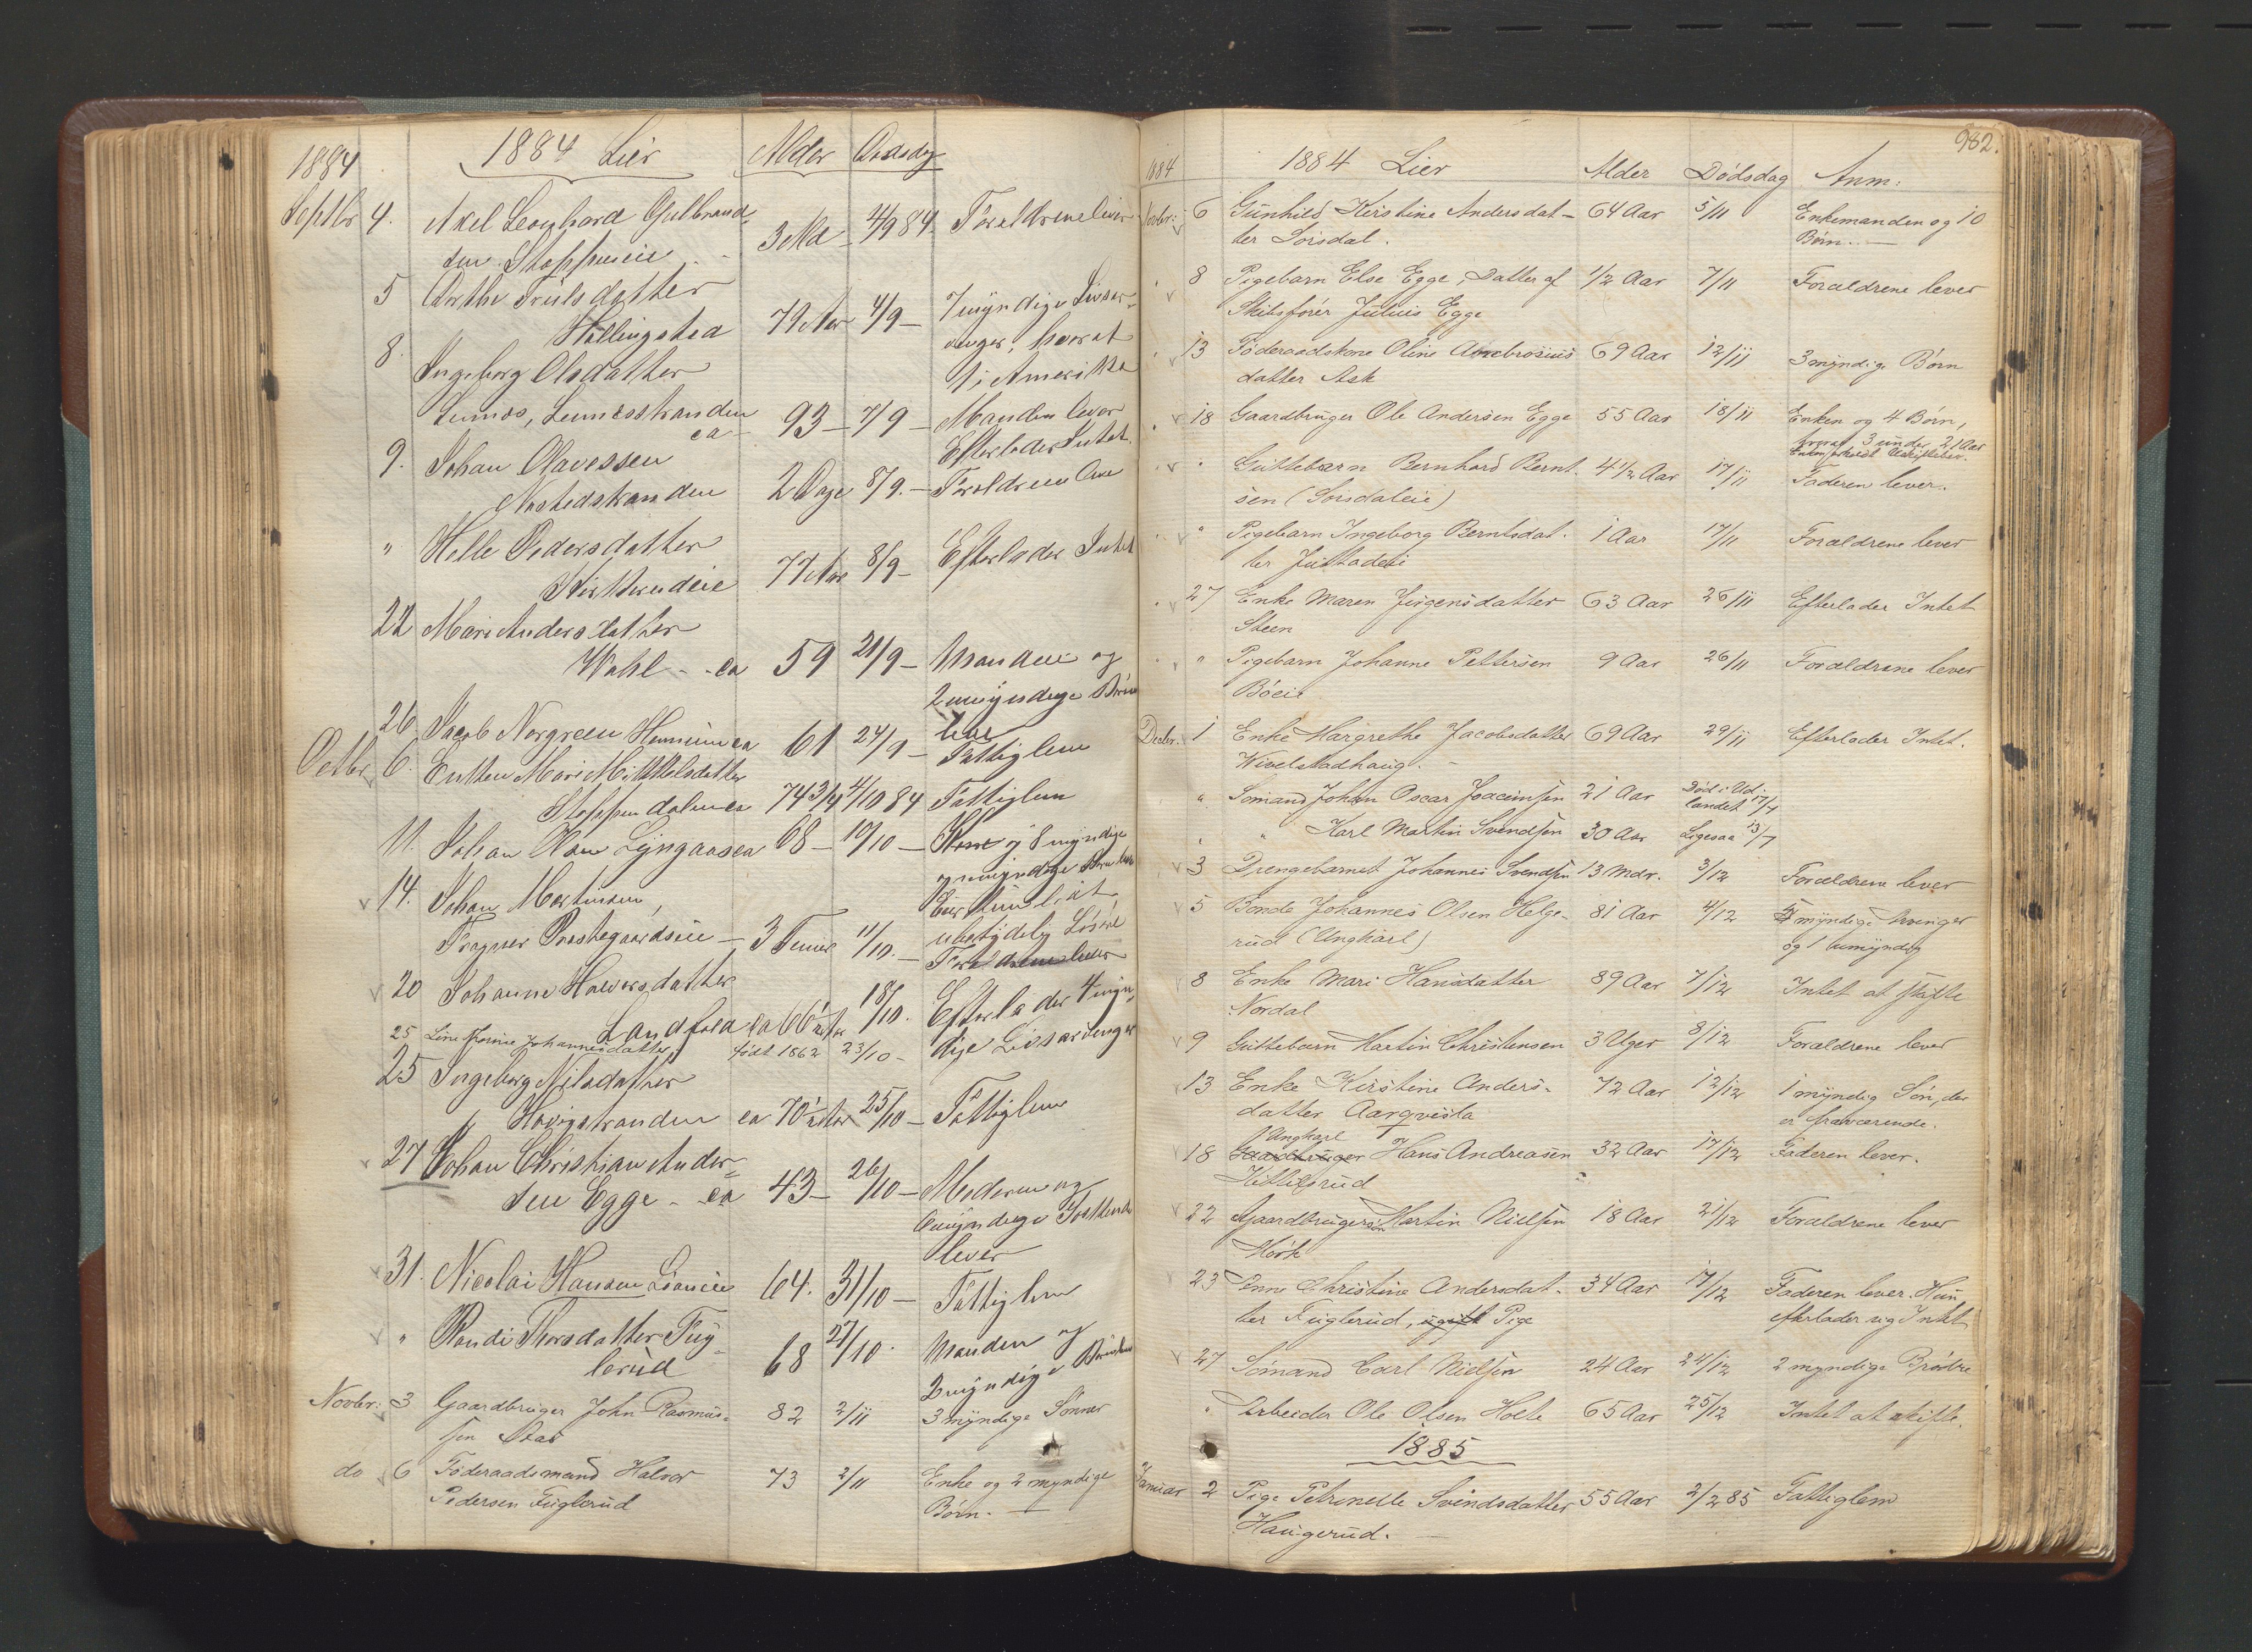 1884
1884 Lier
Alder
Dødsdag
Septbr 4. Axel Leonhard Gulbrand-
sen Stoppeneie 3 Md 4/9 84. Forældrene lever
5 Berthe Trulsdatter
Hellingstad 79 Aar 4/9 – 7 myndige Livsar-
vinger, hvoraf
1 i Amerika
8. Ingeborg Olsdatter
Linnes, Linnesstranden
ca 93 – 7/9 – Manden lever
Efterlader Intet
9. Johan Olavessen
Nøstedstranden 2 Dage 8/9. – Forældrene
" Helle Pedersdatter
77 Aar 8/9 – Efterlader Intet
22 Mari Andersdatter
Wahl – ca 59 21/9 – Manden og
2 umyndige Børn
lever
26 Jacob Norgreen ca 61 24/9 – Fattiglem
Octbr 6. Enken Mari Mikkelsdatter
Stoppendalen ca 74 3/4 4/10 84 Fattiglem
11. Johan Olsen Lyngaas ca 68 – 10/10 – Kone og 8 myndige
og umyndige Børn lever
14. Johan Martinsen,
Eier kun lidt
ubetydelig Løsøre
Frogner Præstegaardseie – 3 Timer 11/10. – Forældrene lever
20 Johanne Halvorsdatter
Landfald ca 66 Aar 18/10. Efterlader 4 myn-
dige Livsarvinger
25 Johannesdatter, født 1862 23/10 –
25 Ingeborg Nilsdatter
Høvigstranden ca 70 Aar 25/10 – Fattiglem
27 Johan Christian Ander-
sen Egge – ca 43 – 26/10 – Moderen og
myndige Søskende
lever
31. Nicolai Hansen Lianeie 64. 31/10 – Fattiglem
" Randi Thorsdatter Fug-
lerud 68 27/10. Manden og
2 myndige Børn
Novbr: 3 Gaardbruger John Rasmus-
sen Stab 82 2/11 3 myndige Sønner
do 6 Føderaadsmand Halvor
Pedersen Fuglerud 73 2/11 Enke og 2 myndige
Børn. –
982.
1884
1884 Lier
Alder
Dødsdag
Anm:
Novbr: 6 Gunhild Kirstine Andersdat-
ter Sørsdal. 64 Aar 5/11 Enkemanden og 10
Børn. –
8 Pigebarn Else Egge, Datter af
Skibsfører Julius Egge 1/2 Aar 7/11 Forældrene lever
13 Føderaadskone Oline Ambrosius
datter Ask 69 Aar 12/11 3 myndige Børn
18 Gaardbruger Ole Andersen Egge 55 Aar 18/11 Enken og 4 Børn,
hvoraf 3 under 21 Aar
" Guttebarn Bernhard Bernt-
sen (Sørsdaleie) 4 1/2 Aar 17/11 Faderen lever.
" Pigebarn Ingeborg Berntsdat-
ter Justadeie 1 Aar 17/11 Forældrene lever
27 Enke Maren Jørgensdatter
Steen 63 Aar 26/11 Efterlader Intet
" Pigebarn Johanne Pettersen
Bøeie 9 Aar 26/11 Forældrene lever
Decbr. 1 Enke Margrethe Jacobsdatter
Wivelstadhaug. – 69 Aar 29/11 Efterlader Intet.
" Sømand Johan Oscar Joacimsen 21 Aar Død i Ud-
landet 17/7
" " Karl Martin Svendsen 30 Aar Ligesaa 13/7
3 Drengebarnet Johannes Svendsen 13 Mdr. 3/12 Forældrene lever
5 Bonde Johannes Olsen Helge-
rud (Ungkarl) 81 Aar 4/12 5 myndige Arvinger
og 1 umyndig
8 Enke Mari Hansdatter
Nordal 89 Aar 7/12 Intet at skifte
9 Guttebarn Martin Christensen 3 Uger 8/12 Forældrene lever
13 Enke Kirstine Anders-
datter Aarqvisla 72 Aar 12/12 1 myndig Søn, der
er fraværende.
18 Gaardbruger Ungkarl Hans Andreasen
Kittilsrud 32 Aar 17/12 Faderen lever.
22 Gaardbrugersøn Martin Nielsen
Mørk 18 Aar 21/12 Forældrene lever
23 Anne Christine Andersdat-
ter Fuglerud, ugift Pige 34 Aar 17/12 Faderen lever. Hun
efterlader sig Intet
27 Sømand Carl Nielsen 24 Aar 24/12 2 myndige Brødre
" Arbeider Ole Olsen Holte 65 Aar 25/12 Intet at skifte.
1885
Januar 2 Pige Petronelle Svindsdatter
Haugerud. – 55 Aar 2/2 85 Fattiglem